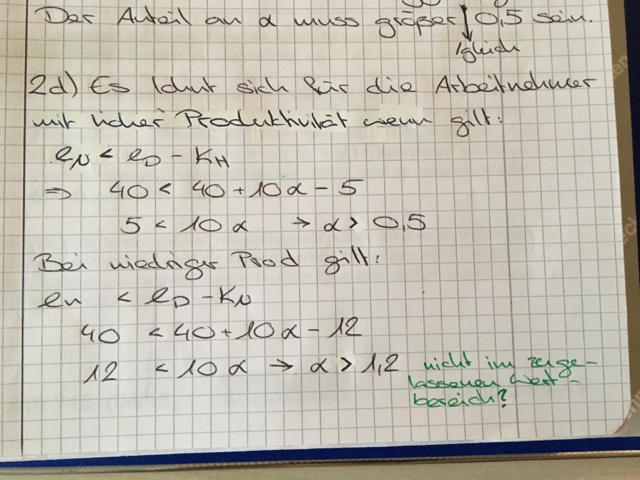 Der Anteil an α muss größer 0,5 sein.
/gleich
2d) Es lohnt sich für die Arbeitnehmer
mit hoher Produktivität wenn gilt:
eN < eD - KH
⇒ 40 < 40 + 10α - 5
5 < 10α → α > 0,5
Bei niedriger Prod gilt:
en < eD - KN
40 < 40 + 10α - 12
12 < 10α → α > 1,2
nicht im zuge-
lassenen Wert-
bereich?